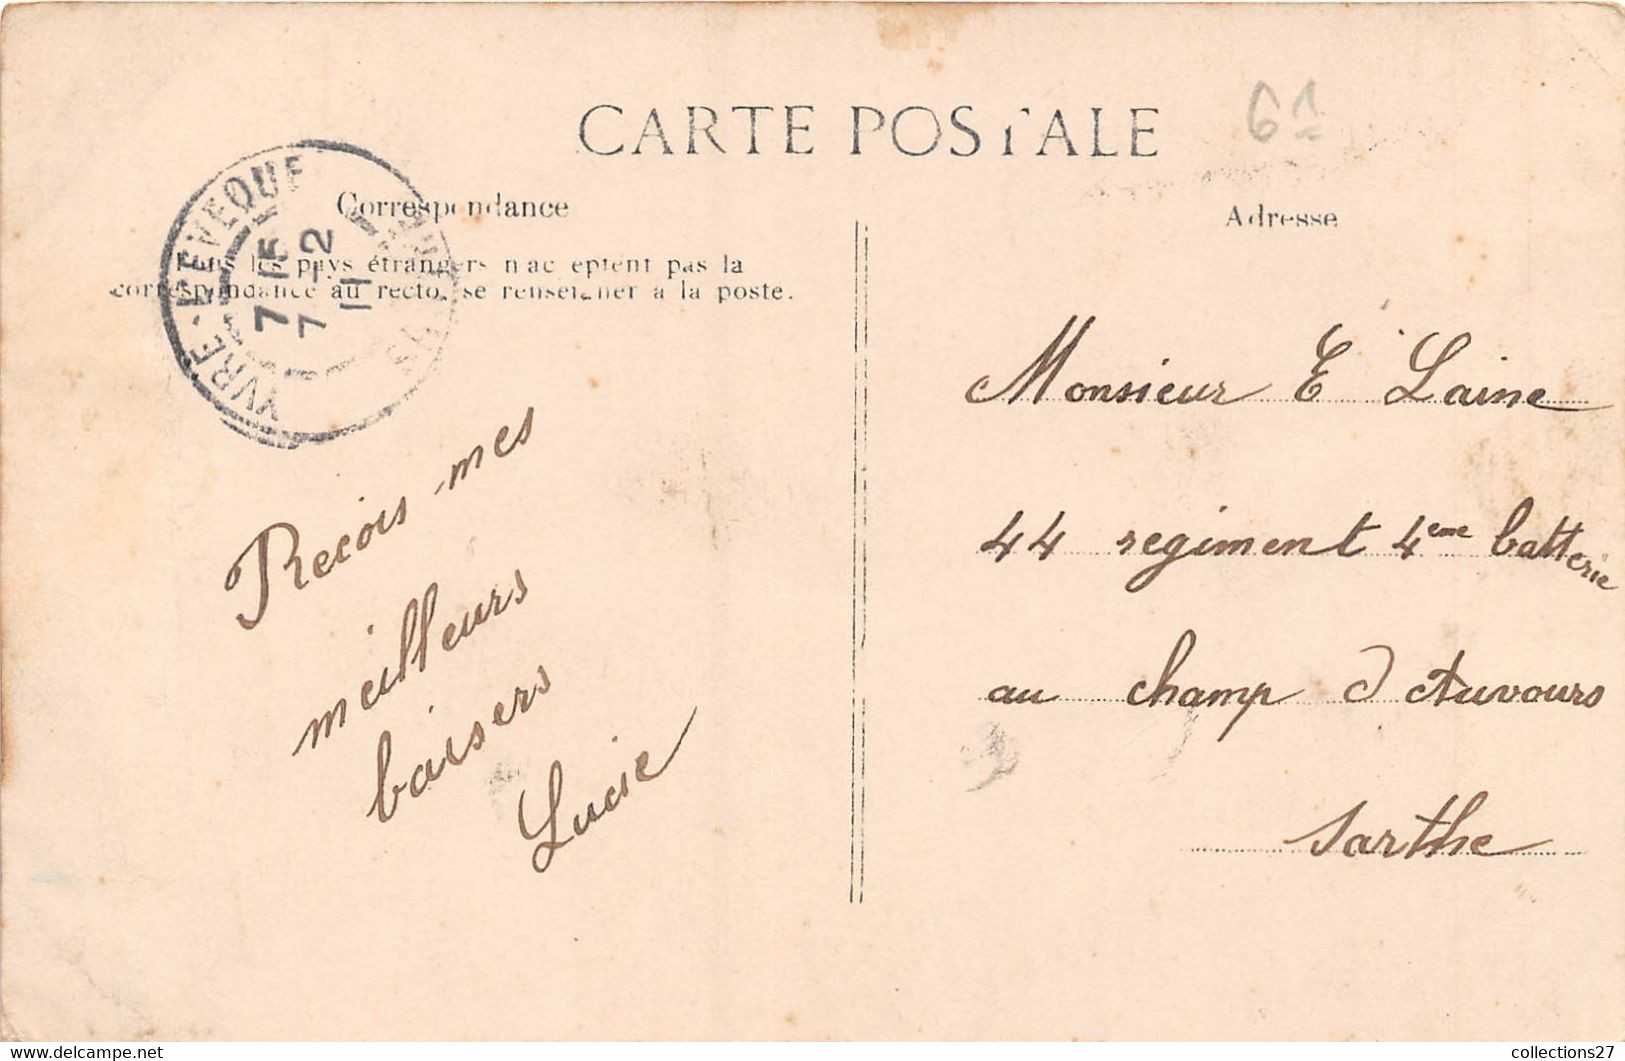 CARTE POSTALE
61
Correspondance
Tous les pays étrangers n'acceptent pas la
correspondance au recto, se renseigner à la poste.
YVRE-L'EVEQUE
7 15
7 -2
11
Recois mes
meilleurs
baisers
Lucie
Adresse
Monsieur E Laine
44 regiment 4eme batterie
au champ d Auvours
Sarthe
collections27